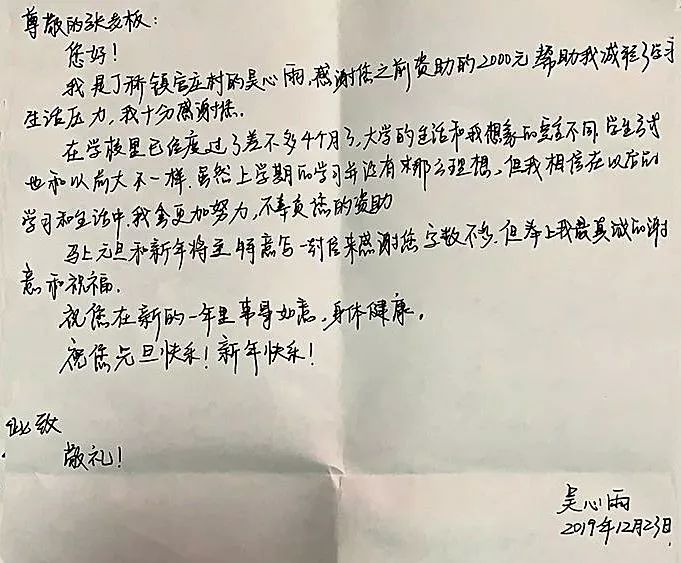 尊敬的张老板：
您好！
我是丁桥镇官庄村的吴心雨，感谢您之前资助的2000元帮助我减轻了
生活压力，我十分感谢您。
在学校里已经度过了差不多4个月了，大学的生活和我想象的完全不同，学生方式
也和以前大不一样。虽然上学期的学习并没有那么理想，但我相信在以后的
学习和生活中，我会更加努力，不辜负您的资助
马上元旦和新年将至特意写一封信来感谢您字数不多，但奉上我最真诚的谢
意和祝福。
祝您在新的一年里事事如意，身体健康。
祝您元旦快乐！新年快乐！
此致
敬礼！
吴心雨
2019年12月23日